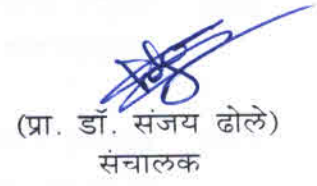 (प्रा. डॉ. संजय ढोले)
संचालक